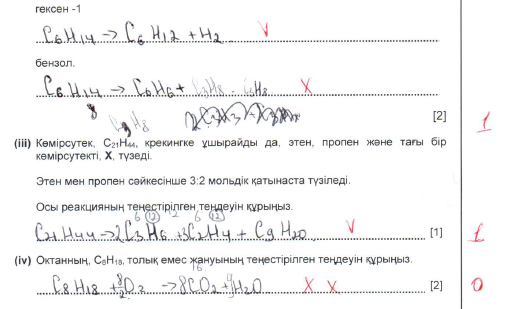 гексен -1
C6H14 → C6H12 + H2 V
бензол.
C6H14 → C6H6 + X
[2] 1
(iii) Көмірсутек, C21H44, крекингке ұшырайды да, этен, пропен және тағы бір
көмірсутекті, X, түзеді.
Этен мен пропен сәйкесінше 3:2 мольдік қатынаста түзіледі.
Осы реакцияның теңестірілген теңдеуін құрыңыз.
6 (12) 12 6 (12)
C21H44 → 2C3H6 + 3C2H4 + C9H20 V [1] 1
(iv) Октанның, C8H18, толық емес жануының теңестірілген теңдеуін құрыңыз.
16
C8H18 + O2 → 8CO2 + 9H2O X X [2] 0